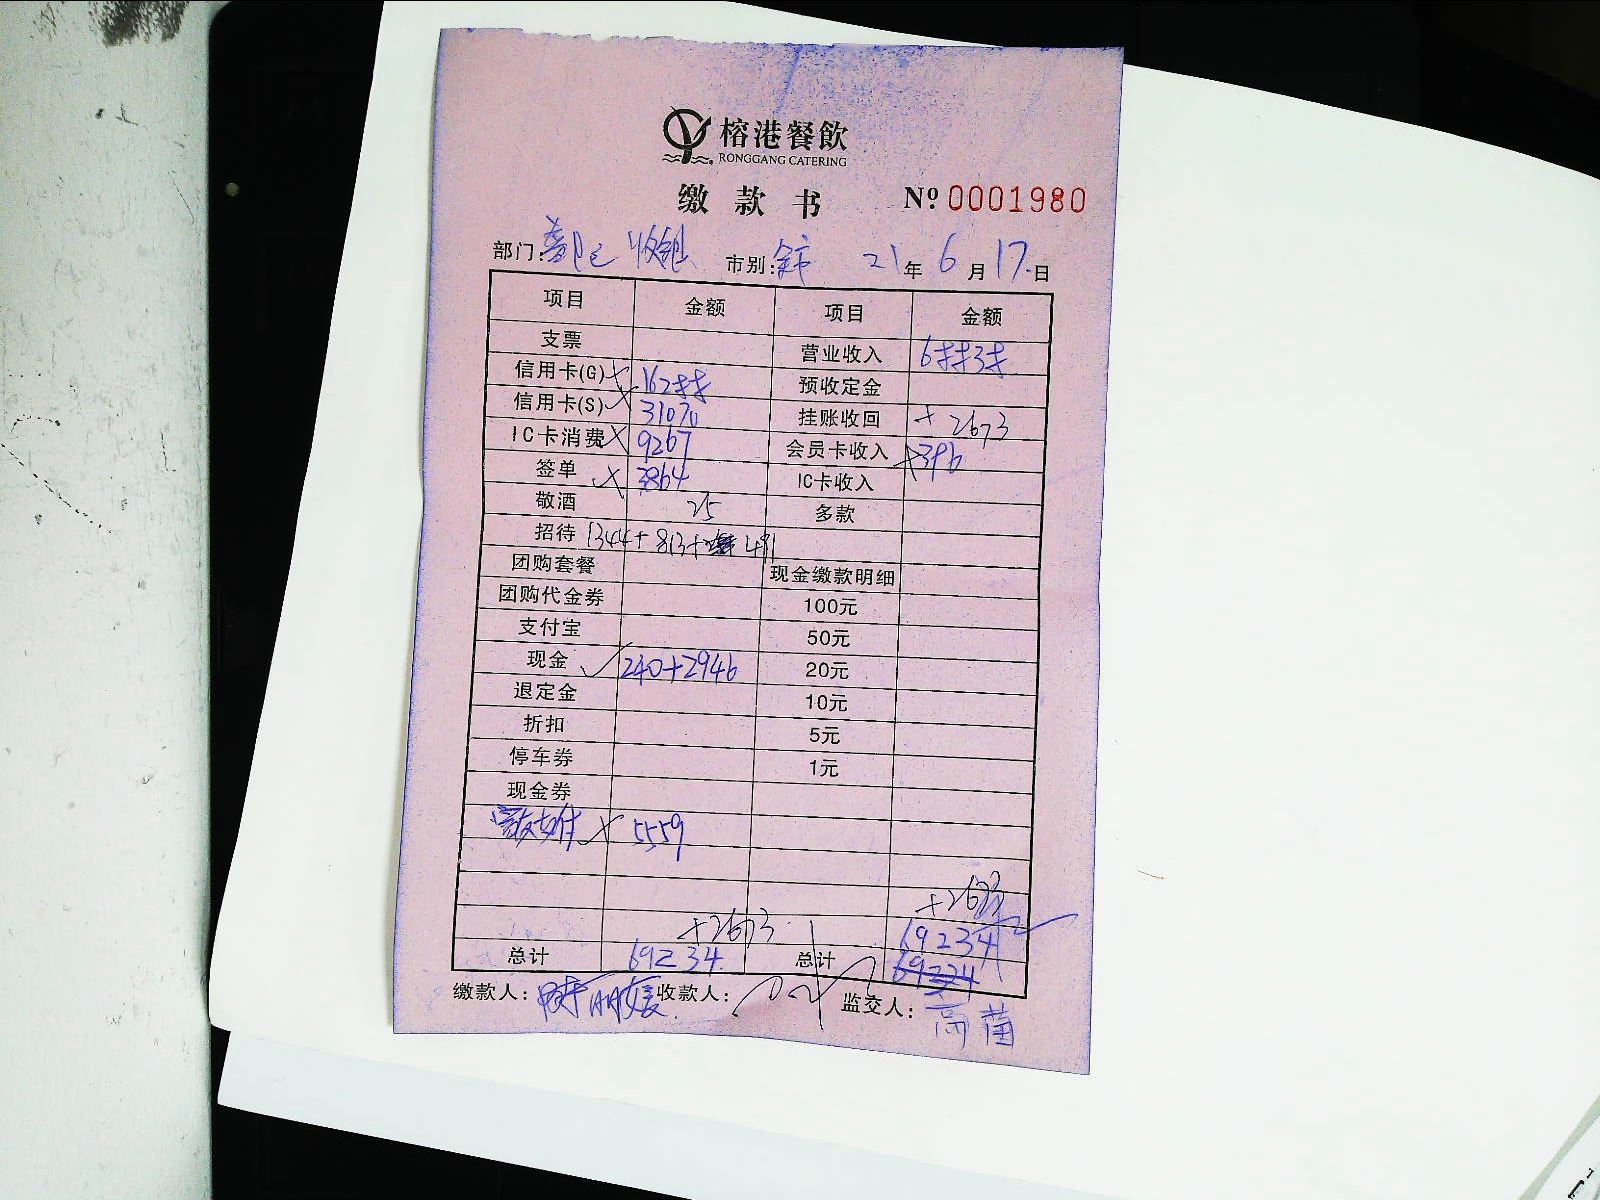 榕港餐飲
RONGGANG CATERING
缴款书 Nº 0001980
部门: 市别: 21年6月17日
项目 金额 项目 金额
支票 营业收入
信用卡(G) 预收定金
信用卡(S) 31070 挂账收回 +2673
IC卡消费 9267 会员卡收入 396
签单 3864 IC卡收入
敬酒 25 多款
招待 1344+813+
团购套餐 现金缴款明细
团购代金券 100元
支付宝 50元
现金 240+2946 20元
退定金 10元
折扣 5元
停车券 1元
现金券
5559
+2673
+2673 69234
总计 69234 总计 69234
缴款人: 收款人: 监交人: